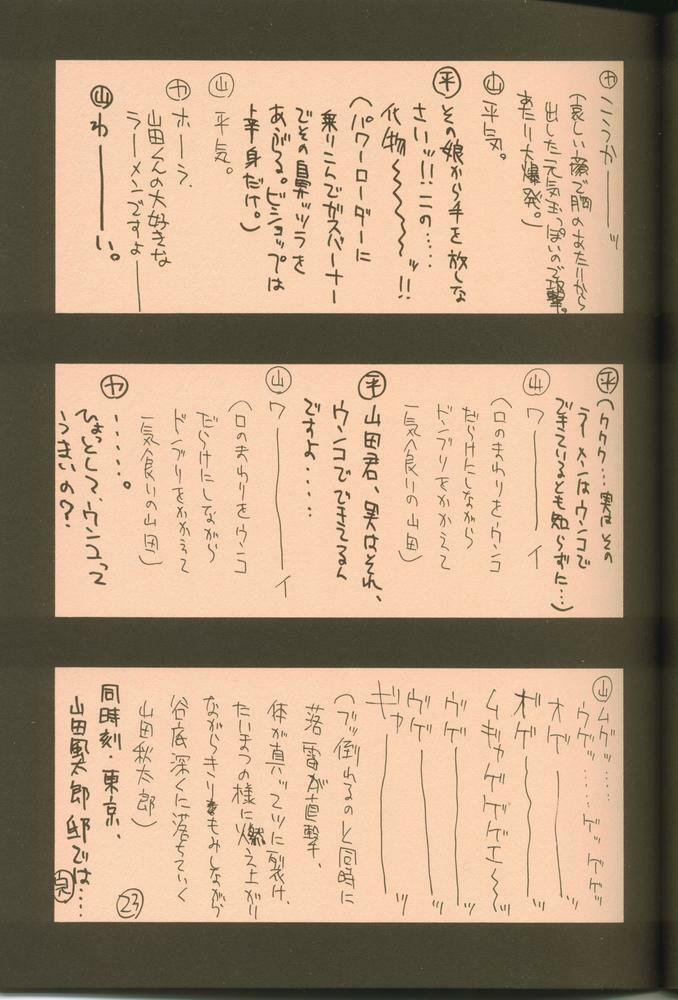 ヤ こうかーーーッ
(哀しい顔で胸のあたりから
出した元気玉っぽいので攻撃。
あたり大爆発。)
山 平気。
平 その娘から手を放しな
さいッ!!この……
化物〜〜〜〜ッ!!
(パワーローダーに
乗りこんでガスバーナー
でその鼻ッツラを
あぶる。ビショップは
上半身だけ。)
山 平気。
ヤ ホーラ、
山田くんの大好きな
ラーメンですよーーー
山 わーーーい。
平 (ククク…実はその
ラーメンはウンコで
できているとも知らずに…)
山 ワーーーーイ
(口のまわりをウンコ
だらけにしながら
ドンブリをかかえて
一気食いの山田)
平 山田君、実はそれ、
ウンコでできてるん
ですよ……
山 ワーーーーイ
(口のまわりをウンコ
だらけにしながら
ドンブリをかかえて
一気食いの山田)
ヤ ……。
ひょっとして、ウンコって
うまいの?
山 ムゲッ……
ウゲッ……ゲッゲゲッ
オゲーーーーッ
オゲーーーーッ
ムギャゲゲゲエ〜〜ッ
ウゲーーーーッ
ウゲーーーーッ
ギャーーーーッ
(ブッ倒れるのと同時に
落雷が直撃、
体が真ッ二ツに裂け、
たいまつの様に燃え上がり
ながらきりもみしながら
谷底深くに落ちていく
山田秋太郎)
同時刻・東京、
山田風太郎邸では……
完
23